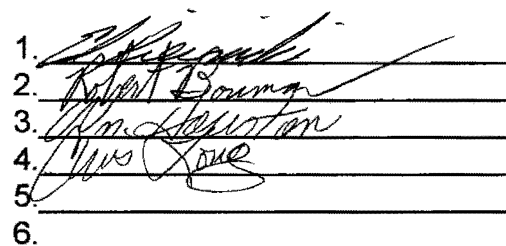 1.
2. Robert Bowman
3. Wm. Houston
4. Chris Long
5.
6.